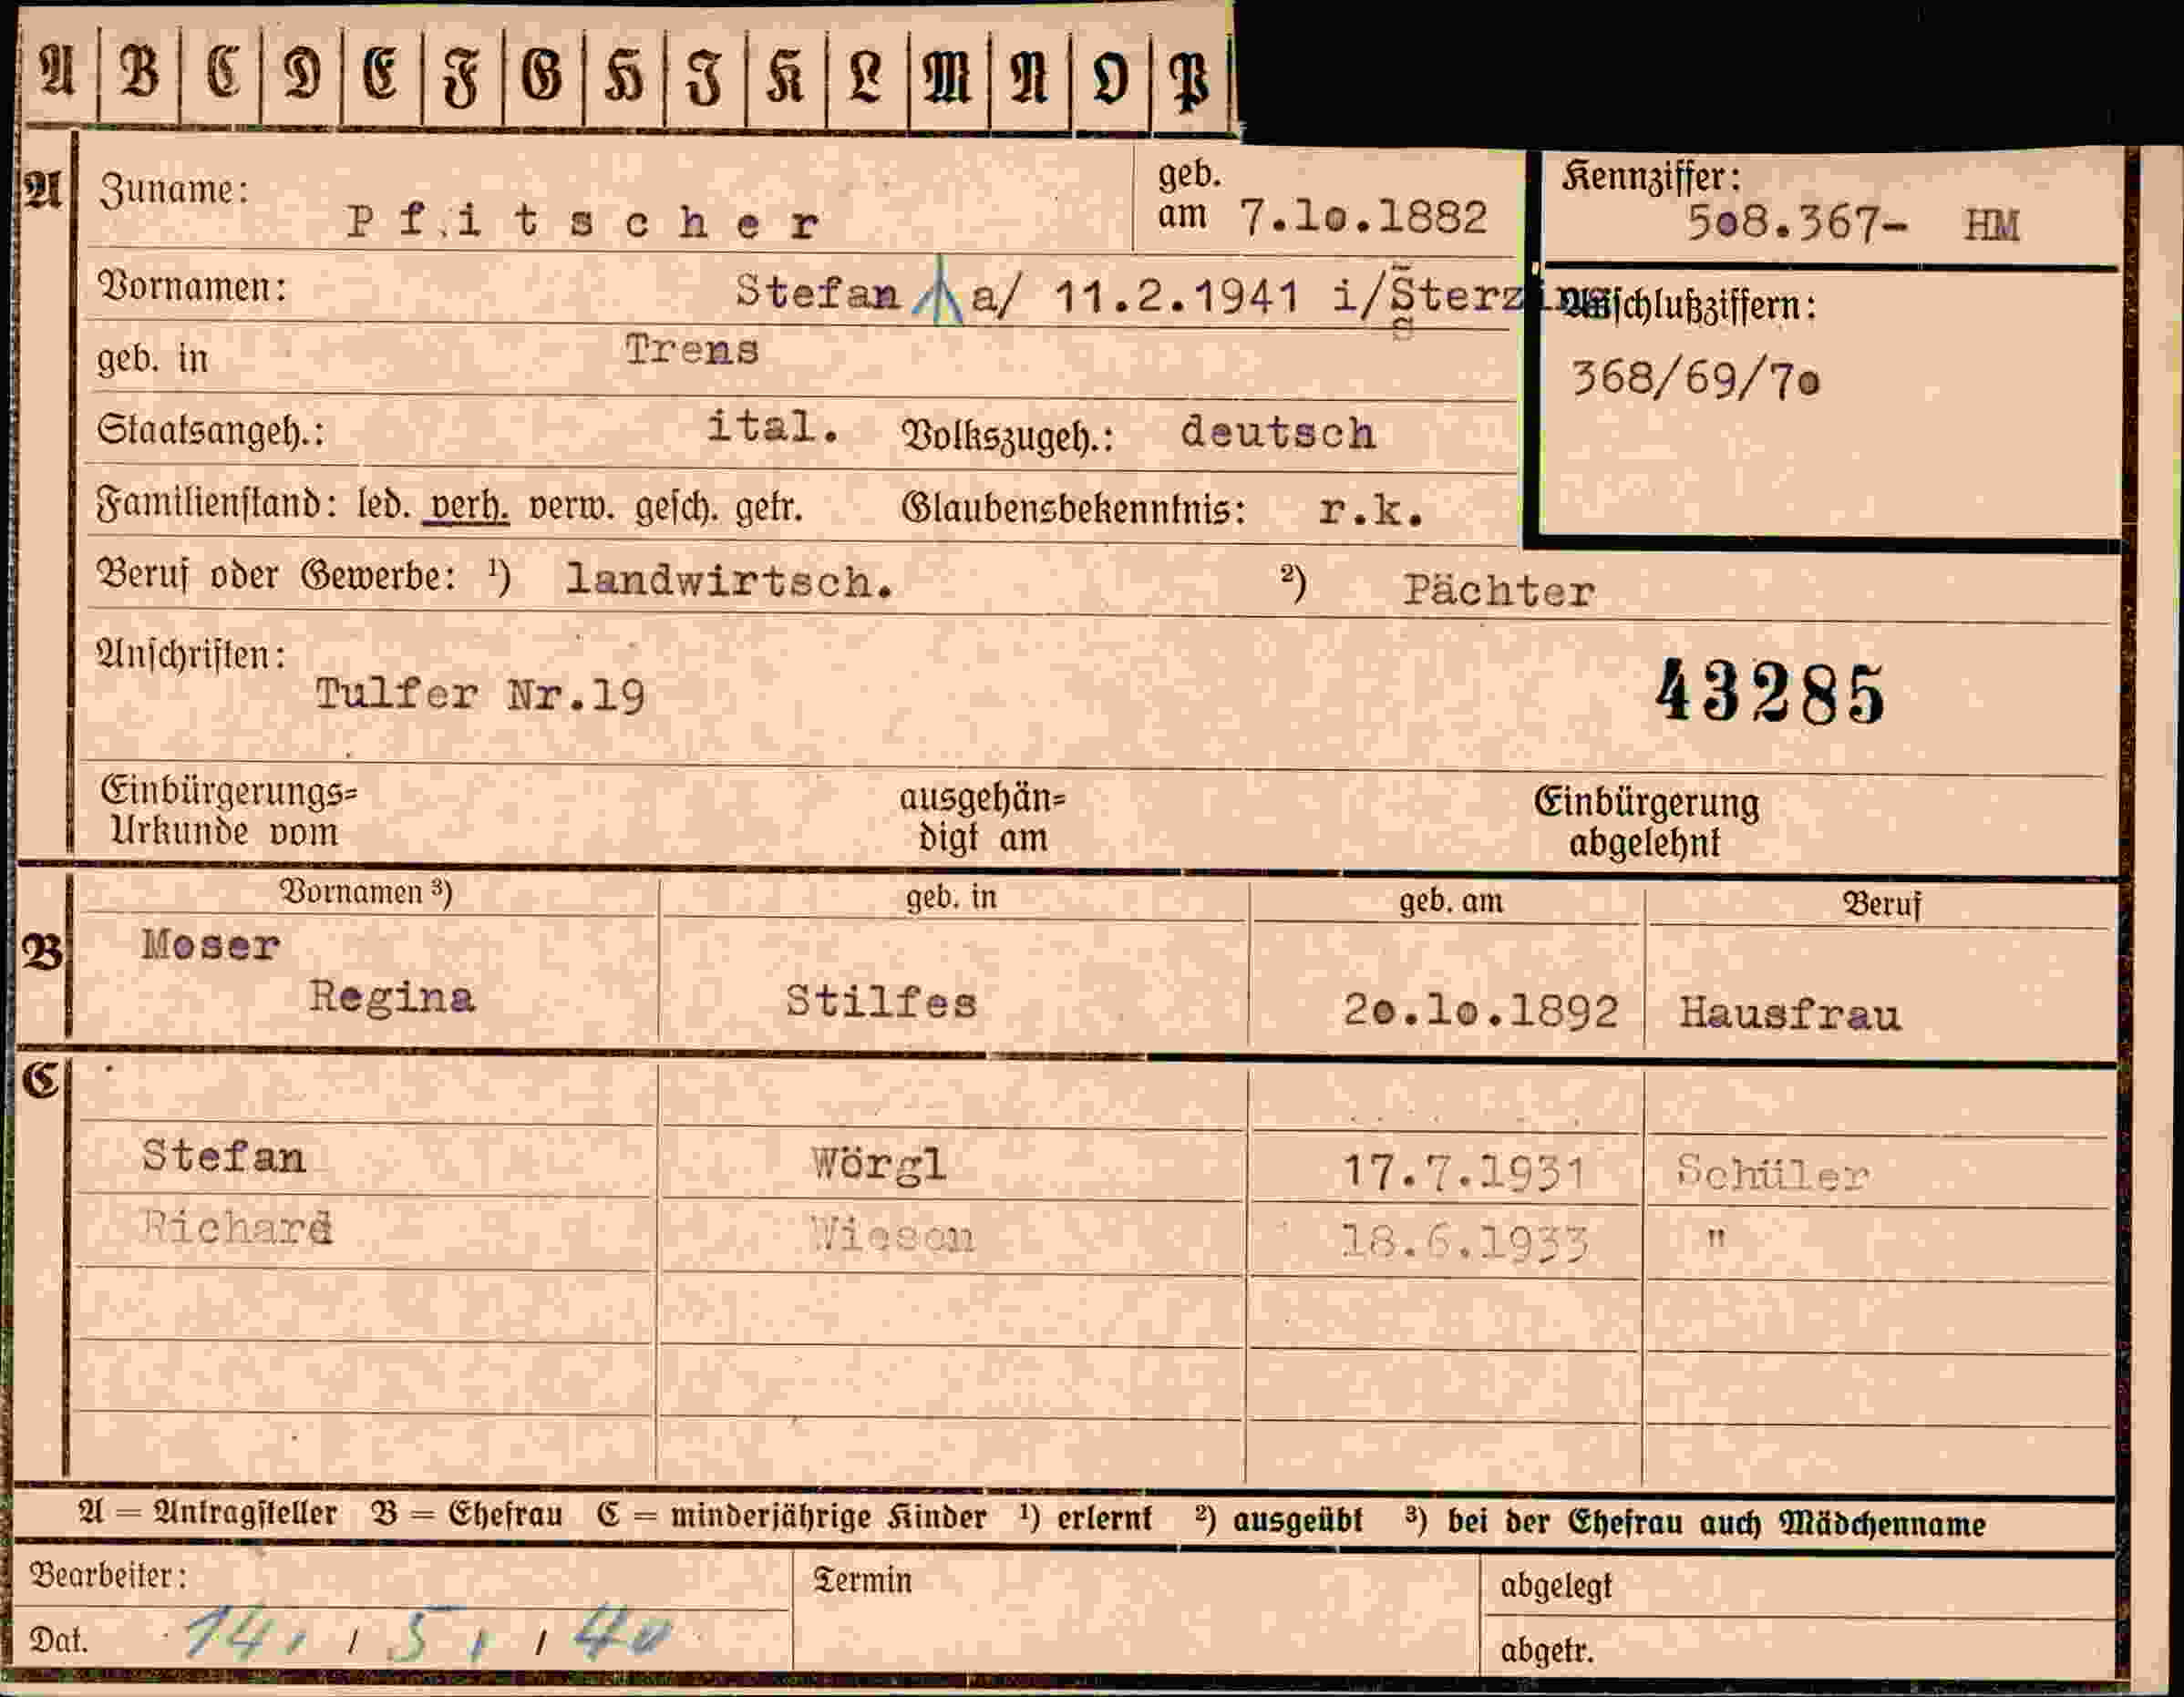 A B C D E F G H I K L M N O P
A Zuname: Pfitscher geb. am 7.10.1882 Kennziffer: 508.367- HM
Vornamen: Stefan a/ 11.2.1941 i/Sterzing Anschlußziffern:
geb. in Trens 368/69/70
Staatsangeh.: ital. Volkszugeh.: deutsch
Familienstand: led. verh. verw. gesch. getr. Glaubensbekenntnis: r.k.
Beruf oder Gewerbe: ¹) landwirtsch. ²) Pächter
Anschriften:
Tulfer Nr.19 43285
Einbürgerungs= ausgehän= Einbürgerung
Urkunde vom digt am abgelehnt
Vornamen ³) geb. in geb. am Beruf
B Moser
Regina Stilfes 20.10.1892 Hausfrau
C
Stefan Wörgl 17.7.1931 Schüler
Richard Wiesen 18.6.1933 "
A = Antragsteller B = Ehefrau C = minderjährige Kinder ¹) erlernt ²) ausgeübt ³) bei der Ehefrau auch Mädchenname
Bearbeiter: Termin abgelegt
Dat. 14. / 5. / 40 abgetr.